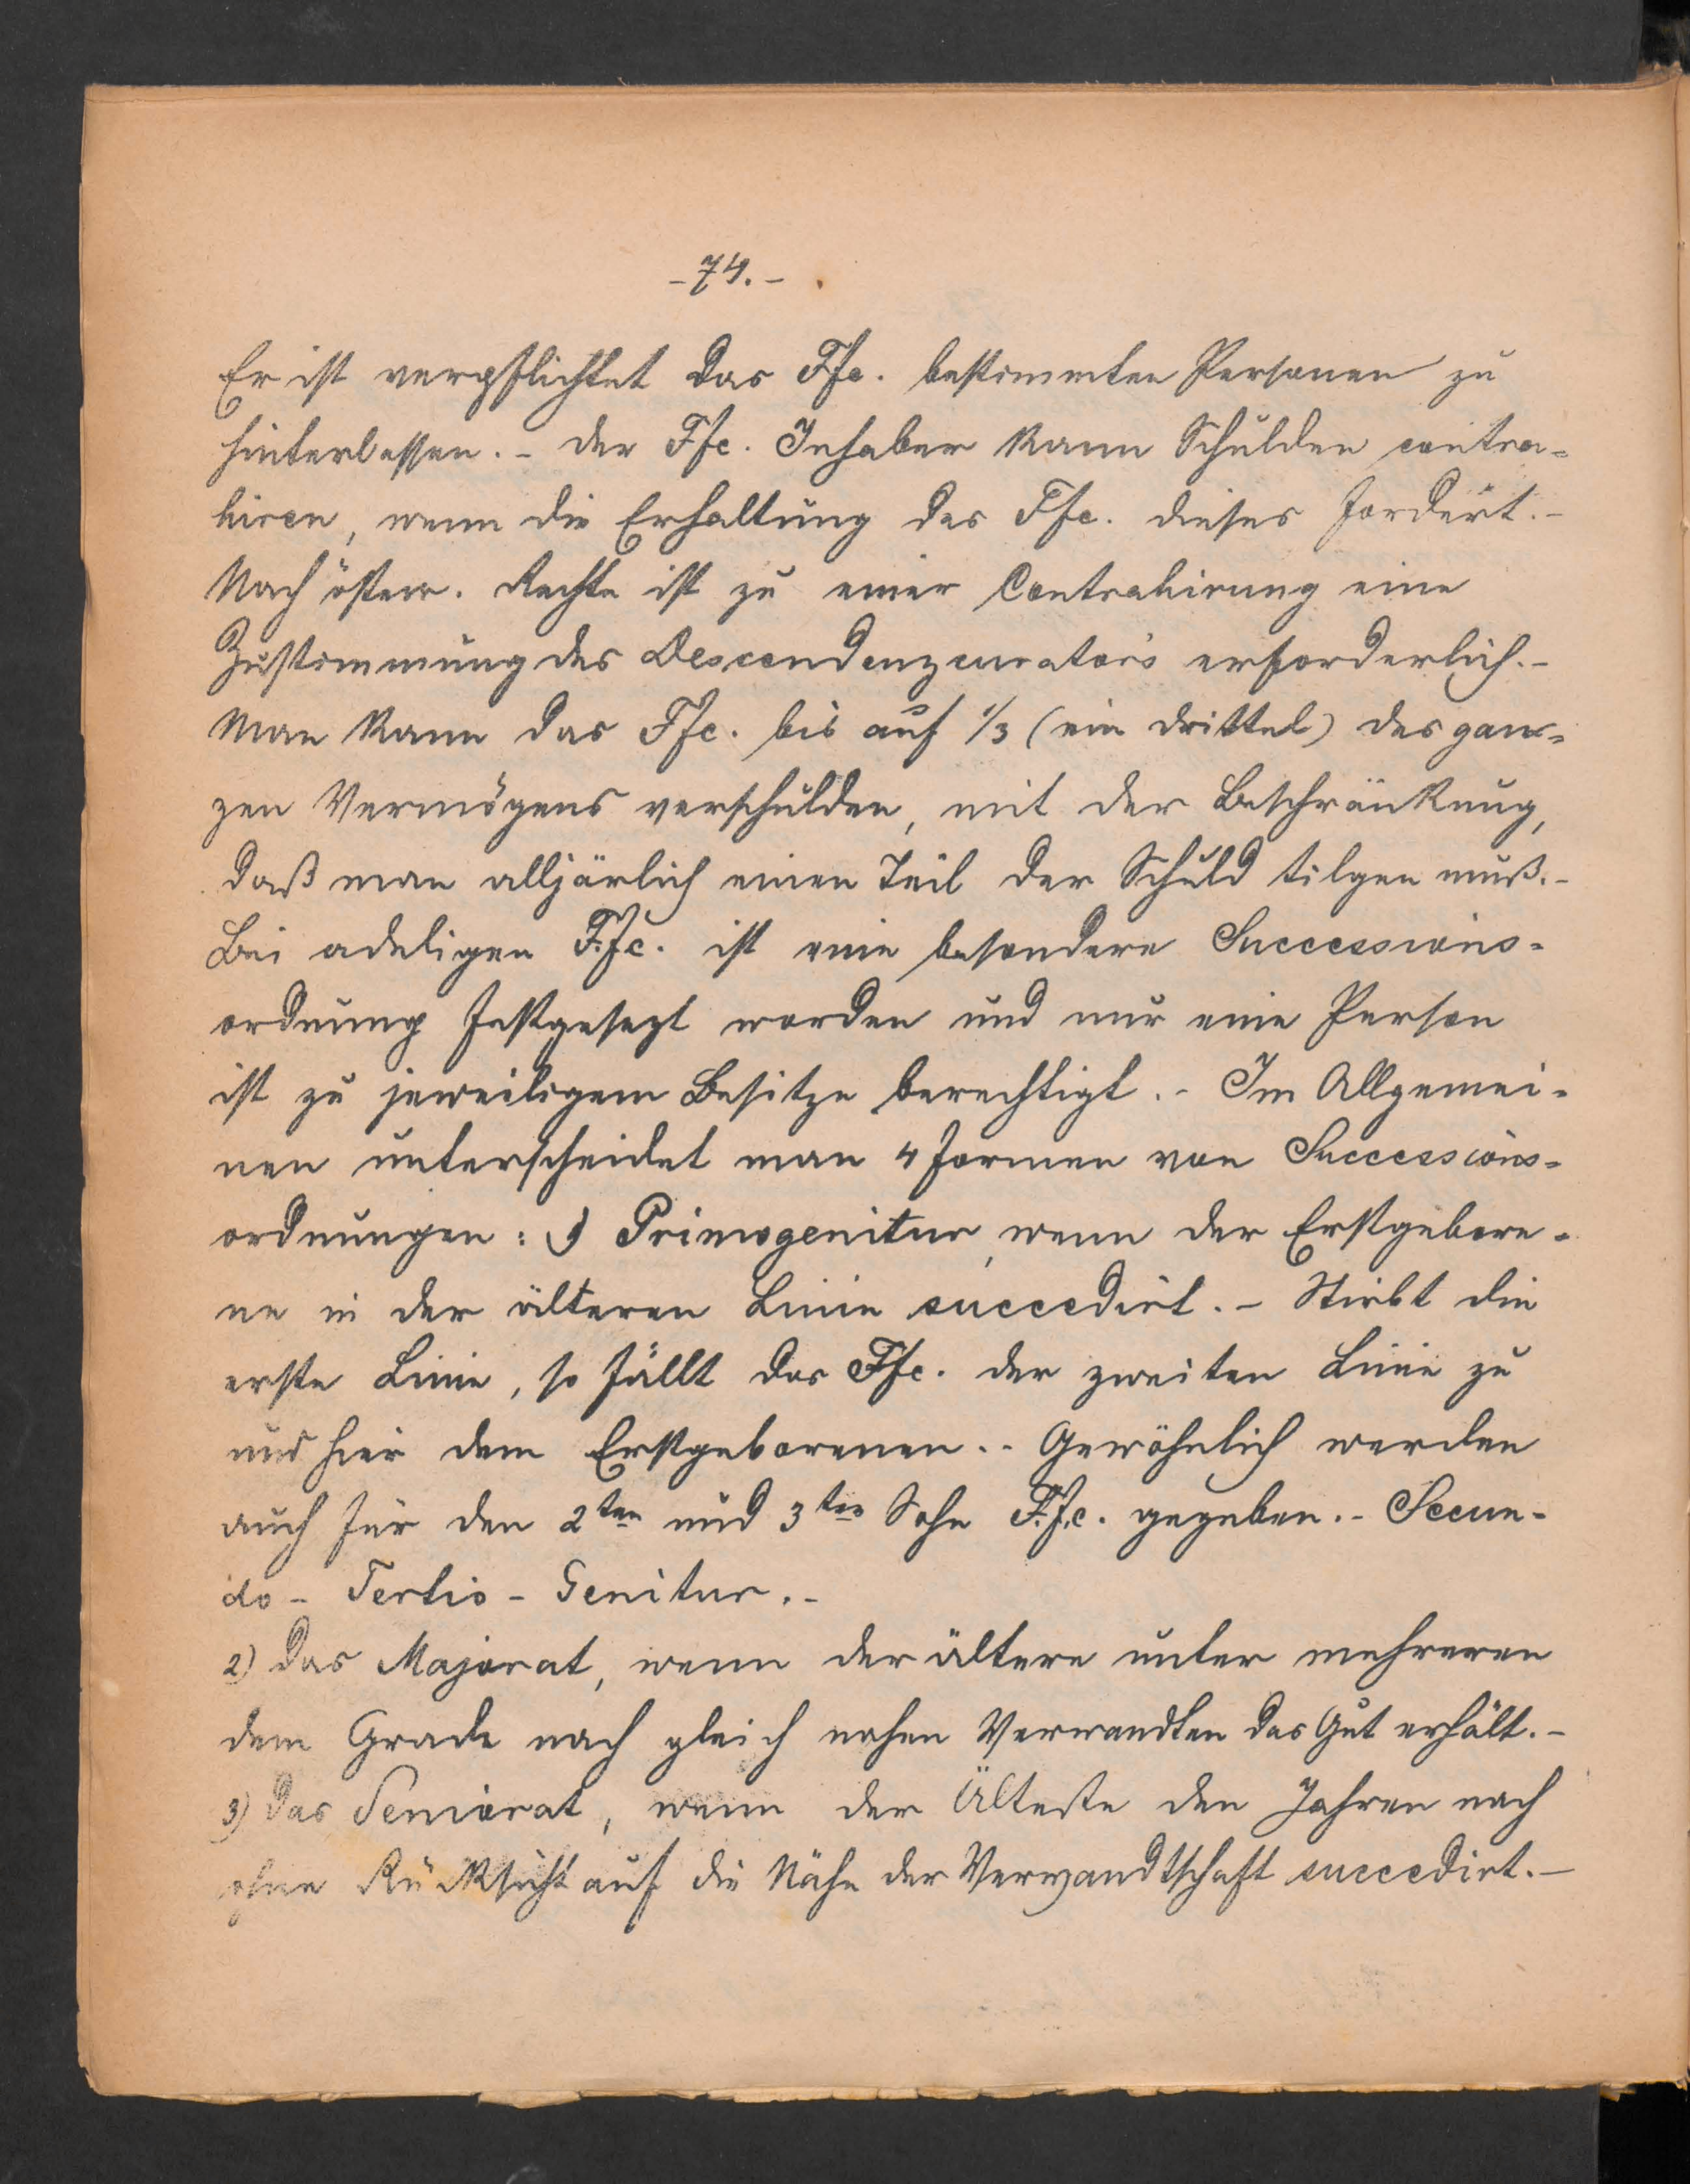 - 74. -
Er ist verpflichtet das Ffc. bestimmten Personen zu
hinterlassen. - Der Ffc. Inhaber kann Schulden contra-
hiren, wenn die Erhaltung des Ffc. dieses fordert. -
Nach österr. Rechte ist zu einer Contrahirung eine
Zustimmung des Descendenzcurators erforderlich. -
Man kann das Ffc. bis auf 1/3 (ein drittel) des gan-
zen Vermögens verschulden, mit der Beschränkung,
daß man alljärlich einen Teil der Schuld tilgen muß. -
Bei adeligen F.fc. ist eine besondere Successions-
ordnung festgesezt worden und nur eine Person
ist zu jeweiligem Besitze berechtigt. - Im Allgemei-
nen unterscheidet man 4 Formen von Successions-
ordnungen: 1) Primogenitur, wenn der Erstgebore-
ne in der älteren Linie succedirt. - Stirbt die
erste Linie, so fällt das Ffc. der zweiten Linie zu
und hier dem Erstgeborenen. - Gewöhnlich werden
auch für den 2ten und 3ten Sohn F.f.c. gegeben. - Secun-
do - Tertio - Genitur. -
2) Das Majorat, wenn der ältere unter mehreren
dem Grade nach gleich nahen Verwandten das Gut erhält. -
3) Das Seniorat, wenn der Älteste den Jahren nach
ohne Rücksicht auf die Nähe der Verwandtschaft succedirt. -